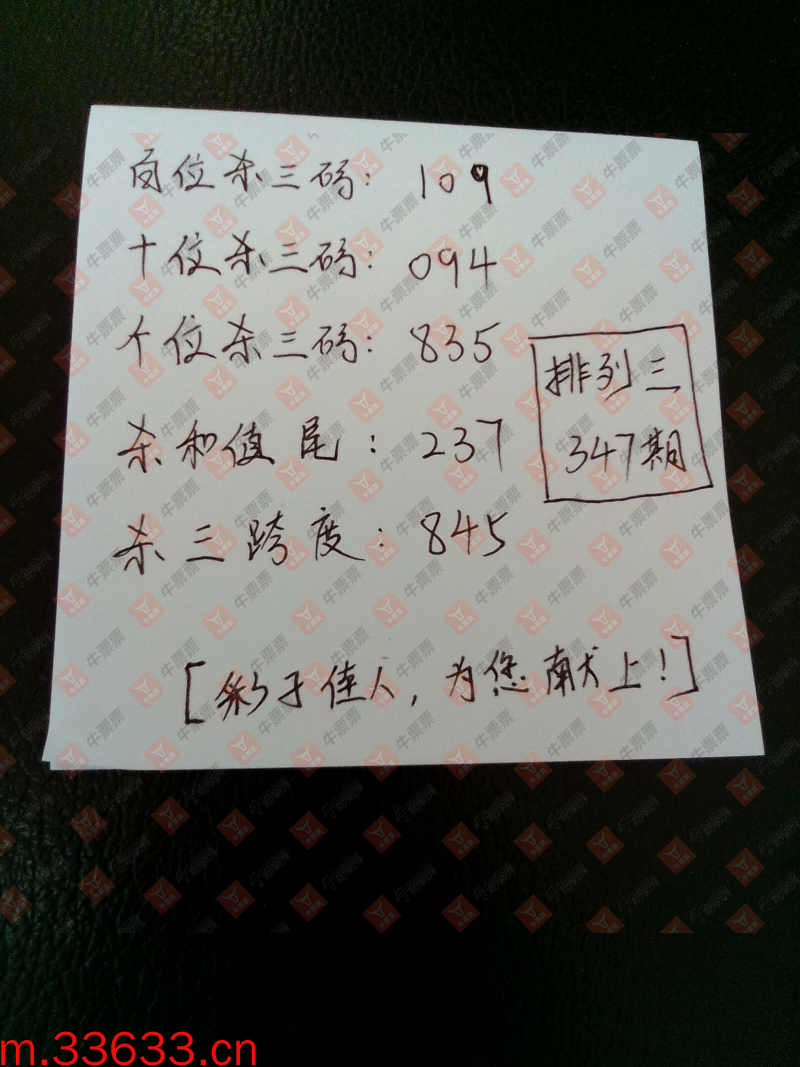 百位杀三码: 109
十位杀三码: 094
个位杀三码: 835
排列三
347期
杀和值尾: 237
杀三跨度: 845
[彩子佳人,为您献上!]
牛票票
m.33633.cn